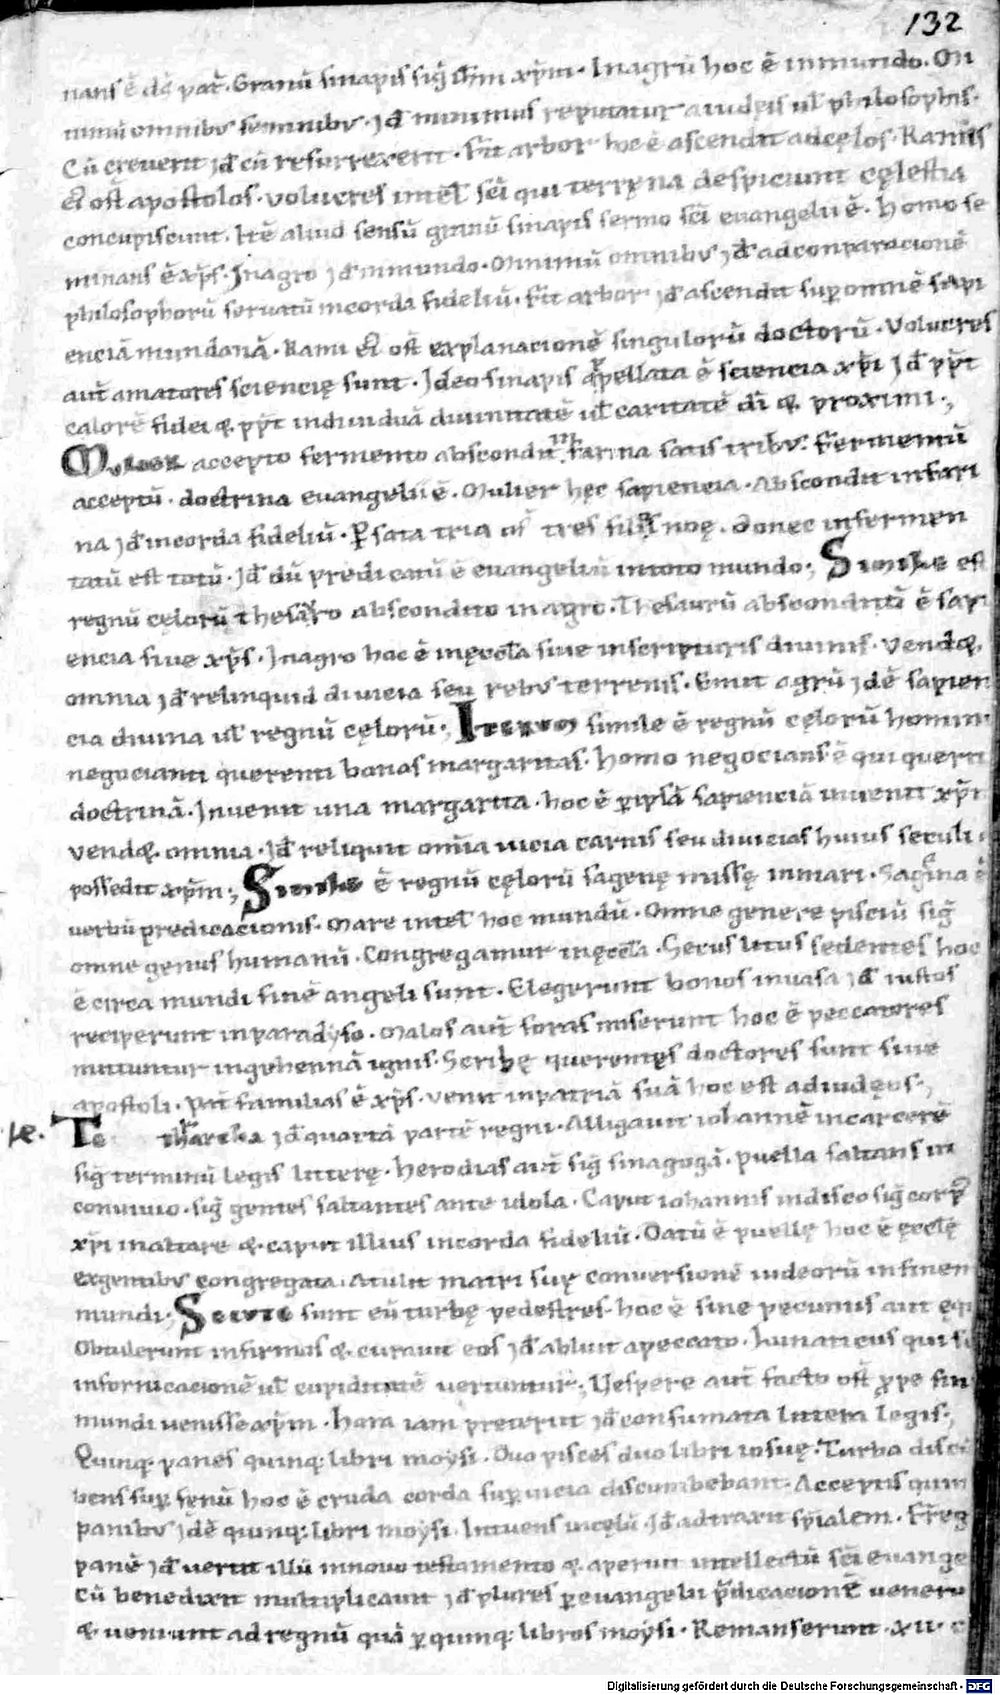 132
nans ē d̄s pat̄. Granū sinapis sig̅ dn̄m xp̄m. In agrū hoc ē in mundo. Mi
nimū omnibus seminibus. id̄ minimus reputatur a iudeis ul̄ philosophis.
Cū creuerit id̄ cū resurrexerit. Fit arbor hoc ē ascendit ad cęlos. Ramis
apostolos. uolucres intel̄ sc̄i qui terręna despiciunt cęlestia
concupiscunt. Itē aliud sensū granū sinapis sermo sc̄i euangelii ē. homo se
minans ē xp̄s. In agro id̄ in mundo. Minimū omnibus id̄ ad conparacionē
philosophorū seruatū in corda fideliū. Fit arbor id̄ ascendit sup omnē sapi
enciā mundanā. Rami explanacionē singulorū doctorū. Volucres
aut̄ amatores sciencię sunt. Ideo sinapis appellata ē sciencia xp̄i id̄ pp̄t
calorē fidei &. pp̄t indiuiduā diuinitatē ul̄ caritatē dī &. proximi.,
Mulier accepto fermento abscondit in farina satis tribus. Fermentū
acceptū. doctrina euangelii ē. Mulier hęc sapiencia. Abscondit in fari
na id̄ in corda fideliū. P sata tria tres filii noę. Donec in fermen
tatū est totū. id̄ dū predicatū ē euangeliū in toto mundo; Simile est
regnū cęlorū thesauro abscondito in agro. Thesaurū absconditū ē sapi
encia siue xp̄s. In agro hoc ē in ęccl̄a siue in scripturis diuinis. Vendit
omnia id̄ relinquid diuicia seu rebus terrenis. Emit agrū idē sapien
cia diuina ul̄ regnū cęlorū; Iterum simile ē regnū cęlorū homini
negocianti querenti bonas margaritas. homo negocians ē qui querit
doctrinā. Inuenit una margarita. hoc ē p ipsā sapienciā inuenit xp̄m
vendit omnia. id̄ reliquit om̄ia uicia carnis seu diuicias huius seculi.
possedit xp̄m; Simile ē regnū cęlorū sagenę missę in mari. Sagena ē
uerbū predicacionis. Mare intel̄ hoc mundū. Omne genere pisciū sig̅
omne genus humanū. Congregamur in ęccl̄a. Secus litus sedentes hoc
ē circa mundi finē angeli sunt. Elegerunt bonos in uasa id̄ iustos
reciperunt in paradyso. Malos aut̄ foras miserunt hoc ē peccatores
mittuntur in gehennā ignis. Scribę querentęs doctores sunt siue
apostoli. Pat̄ familias ē xp̄s. venit in patriā suā hoc est ad iudęos;
Te tharcha id̄ quartā partē regni. Alligauit iohannē in carcerē
sig̅ terminū legis litterę. herodias aut̄ sig̅ sinagogā. puella saltans in
conuiuio. sig̅ gentes saltantes ante idola. Caput iohannis in disco sig̅ corp̄
xp̄i in altare &. caput illius in corda fideliū. Datū ē puellę hoc ē ęccl̄ę
ex gentibus congregata. Attulit matri suę conuersionē iudeorū in finem
mundi; Secuti sunt eū turbę pedestres. hoc ē sine pecuniis aut equi
Obtulerunt infirmos &. curauit eos id̄ abluit a peccato. Lunaticus qui si
in fornicacionē ul̄ cupiditatē uertuntur; Vespere aut̄ facto prope fin
mundi uenisse xp̄m. hora iam preteriit id̄ consumata littera legis;
Quinq: panes quinq: libri moysi. Duo pisces duo libri iosuę. Turba discū
bens sup fęnū hoc ē cruda corda sup uicia discumbebant. Acceptis quin
panibus idē quinq: libri moysi. Intuens in cęlū. id̄ adtraxit spialem. Freg
panē id̄ uertit illū in nouo testamento &. aperuit intellectū sc̄i euange
Cū benedixit multiplicauit id̄ plures p euangelii p̄dicacionē uenerū
&. ueniunt ad regnū quā p quinq: libros moysi. Remanserunt. xii. c
Digitalisierung gefördert durch die Deutsche Forschungsgemeinschaft - DFG